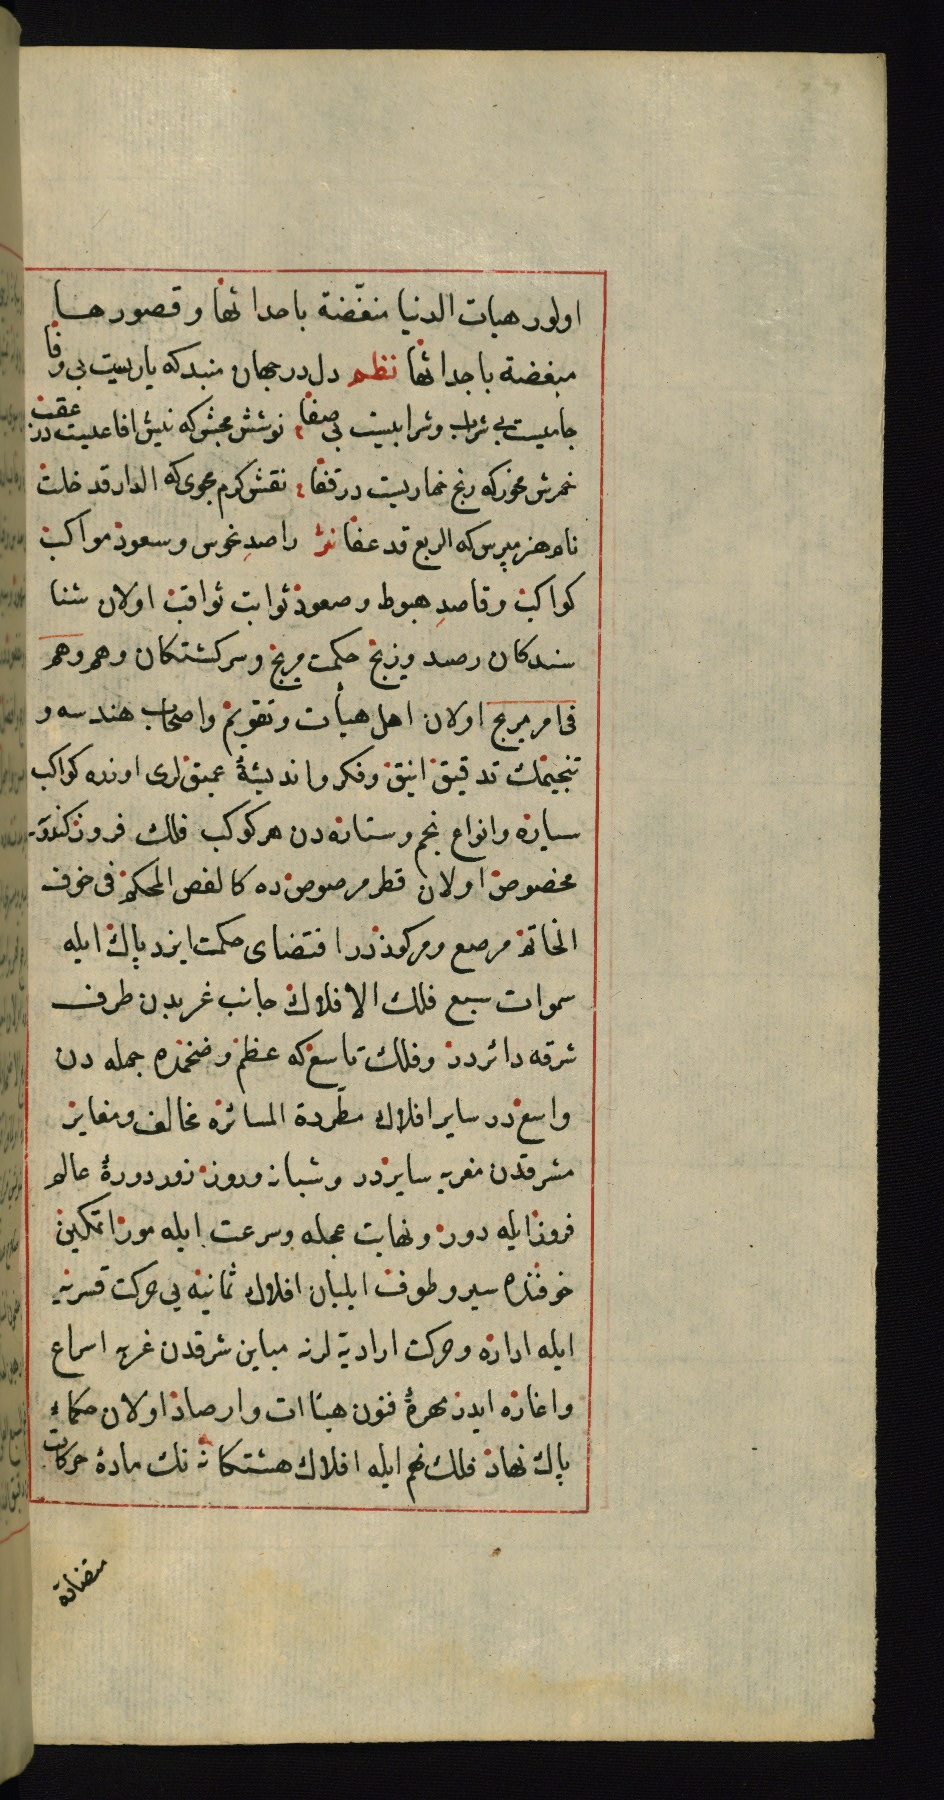 اولور هبات الدنيا منغّضة باحداثها وقصورها
مبغضة باجداثها نظم دل در جهان مبند كه ياريست بى وفا
جاميست بى شراب وشرابيست بى صفا نوشش مچش كه نيش افاعيست در عقب
خمرش مخور كه رنج خماريست در قفا نقش كرم مجوى كه الدار قد خلت
نام هنر مپرس كه الربع قد عفا نثر راصد نحوس وسعود مواكب
كواكب وقاصد هبوط وصعود ثوابت ثواقب اولان شنا
سندكان رصد وزيج حكمت مزيج وسركشتكان وهم وهم
فى امر مريج اولان اهل هيأت وتقويم واصحاب هندسه و
تنجيمك تدقيق انيق وفكر وانديشهٔ عميقلرى اوزره كواكب
سياره وانواع نجم وستاره دن هر كوكب فلك فروز كندويه
مخصوص اولان قطر مرصوصده كالفص المحكم فى خرف
الخاتم مرصع ومركوزدر اقتضاى حكمت ايزد پاك ايله
سموات سبع فلك الافلاك جانب غربدن طرف
شرقه دائردر وفلك تاسع كه عظم وضخمده جمله دن
واسعدر ساير افلاك مطّردة المسائره مخالف ومغاير
مشرقدن مغربه سايردر وشبانه روز زور دورهٔ عالم
فروز ايله دور ونهايت عجله وسرعت ايله مورا تمكين
خوفنده سير وطوف ايليان افلاك ثمانيه يى حركت قسريه
ايله اداره وحركت اراديه لرنه مباين شرقدن غربه اسراع
واغاره ايدر مهرهٔ فنون هيئات وارصاد اولان حكماء
پاك نهاد فلك نهم ايله افلاك هشتكانه نك مادهٔ حركات
متضاده